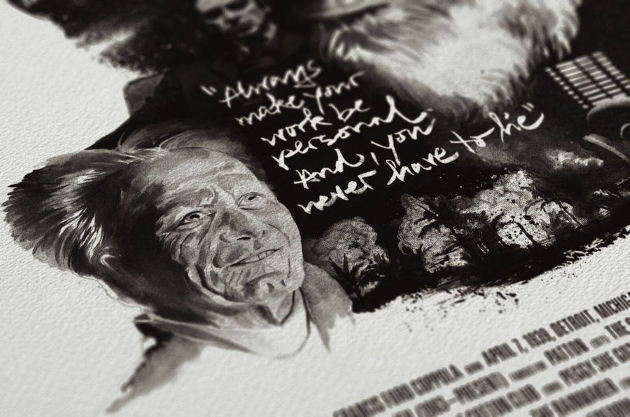 "Always
make your
work be
personal
And, you
never have to lie"
FORD COPPOLA APRIL 7, 1939, DETROIT, MICHIGAN
PRESENT) PATTON THE
PEGGY SUE
COTTON CLUB